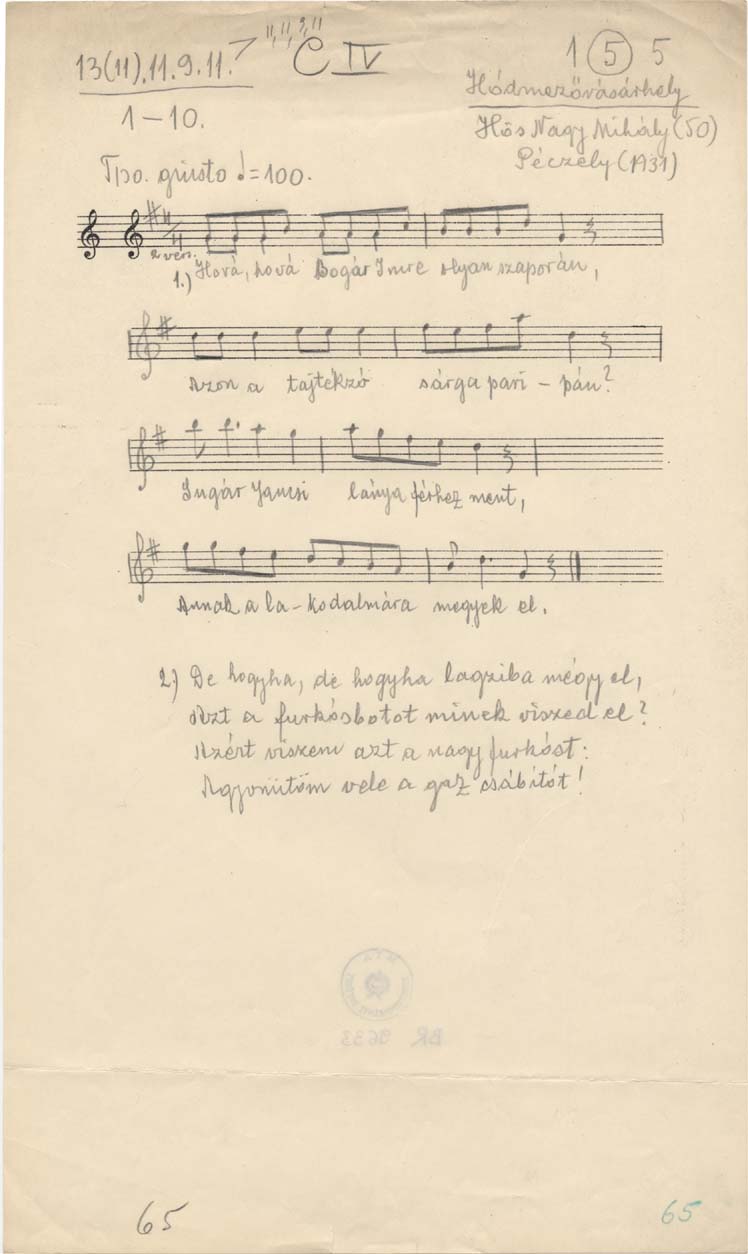 11, 11, 9, 11
13(11).11.9.11.
C IV
1 5 5
1–10.
Hódmezővásárhely
Hős Nagy Mihály (50)
Péczely (1931)
Tpo. giusto ♩=100.
4/4
2 vers.
1.) Hová, hová Bogár Imre olyan szaporán,
Azon a tajtékzó sárga pari – pán?
Sugár Jancsi lánya férhez ment,
Annak a la – kodalmára megyek el.
2.) De hogyha, de hogyha lagziba mégy el,
Azt a furkósbotot minek viszed el?
Azért viszem azt a nagy furkóst:
Agyonütöm vele a gaz csábítót!
BR 9633
65
65